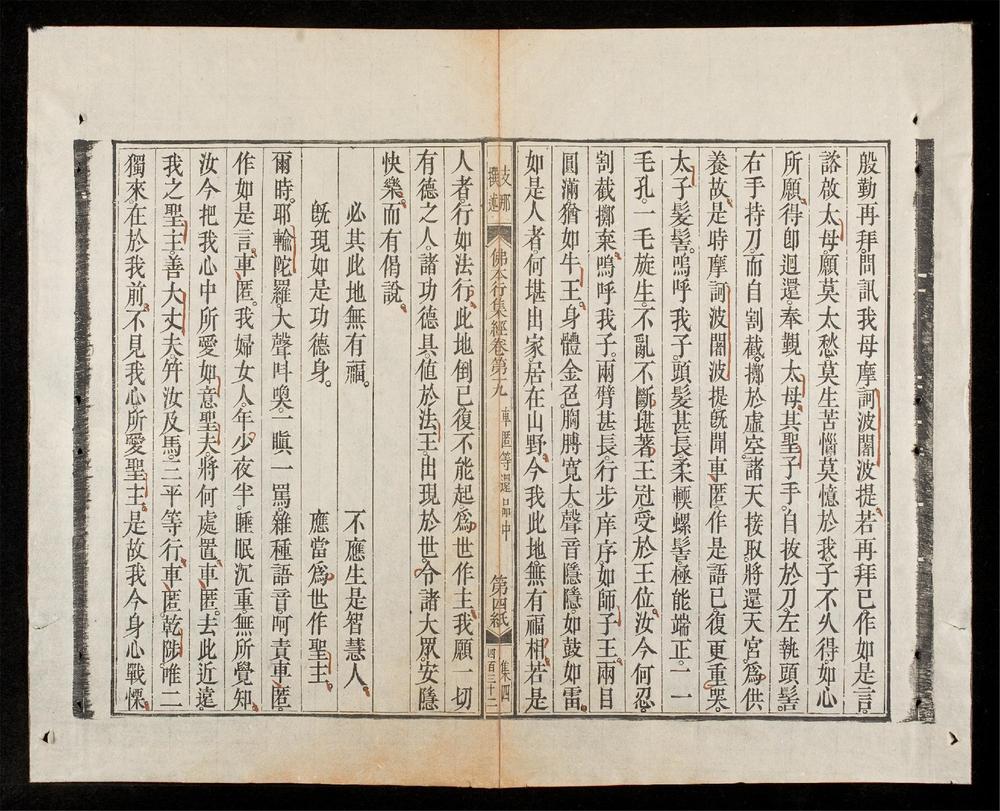 殷勤再拜問訊我母摩訶波闍波提。若再拜已作如是言。
諮啟太母。願莫太愁。莫生苦惱。莫憶於我。子不久得。如心
所願。得即迴還。奉覲太母。其聖子手。自拔於刀。左執頭髻。
右手持刀。而自割截。擲於虛空。諸天接取。將還天宮。為供
養故。是時摩訶波闍波提。既聞車匿作是語已。復更重哭。
太子髮髻。嗚呼我子。頭髮甚長。柔輭螺髻。極能端正。一一
毛孔。一毛旋生。不亂不斷。堪著王冠。受於王位。汝今何忍
割截擲棄。嗚呼我子。兩臂甚長。行步庠序。如師子王。兩目
圓滿。猶如牛王。身體金色。胸膊寬大。聲音隱隱。如鼓如雷。
如是人者。何堪出家。居在山野。今我此地。無有福相。若是
支那撰述
佛本行集經卷第十九 車匿等還品中 第四紙 集四
四百三十二
人者。行如法行。此地倒已。復不能起。為世作主。我願一切
有德之人。諸功德具。值於法王。出現於世。令諸大眾。安隱
快樂。而有偈說。
必其此地無有福。 不應生是智慧人。
既現如是功德身。 應當為世作聖主。
爾時。耶輸陀羅。大聲叫喚。一瞋一罵。雜種語音。呵責車匿。
作如是言。車匿。我婦女人。年少夜半。睡眠沉重。無所覺知。
汝今把我心中所愛。如意聖夫。將何處置。車匿。去此近遠。
我之聖主。善大丈夫。笇汝及馬。三平等行。車匿。乾陟。唯二
獨來在於我前。不見我心所愛聖主。是故我今身心戰慄。